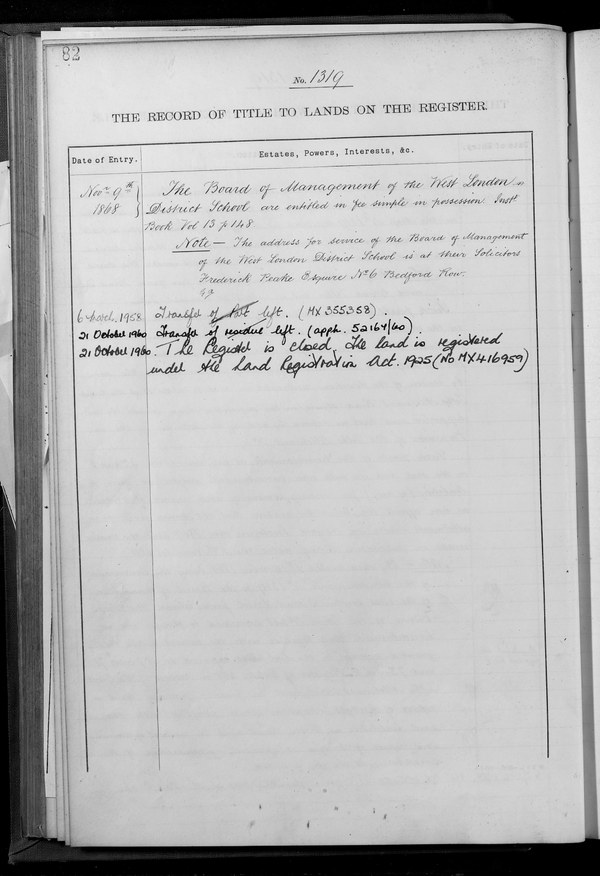 82
No. 1319
THE RECORD OF TITLE TO LANDS ON THE REGISTER.
Date of Entry.
Estates, Powers, Interests, &c.
Novr 9th
1868
The Board of Management of the West London
District School are entitled in fee simple in possession Instt
Book Vol 13 p 148
Note — The address for service of the Board of Management
of the West London District School is at their Solicitors
Frederick Esquire No 6 Bedford Row.
6 March, 1958 Transfer of Pt left. (MX355358).
21 October 1960 Transfer of residue left. (appn. 52164/60).
21 October 1960. The Register is closed, the land is registered
under the Land Registration Act. 1925 (No MX416959)